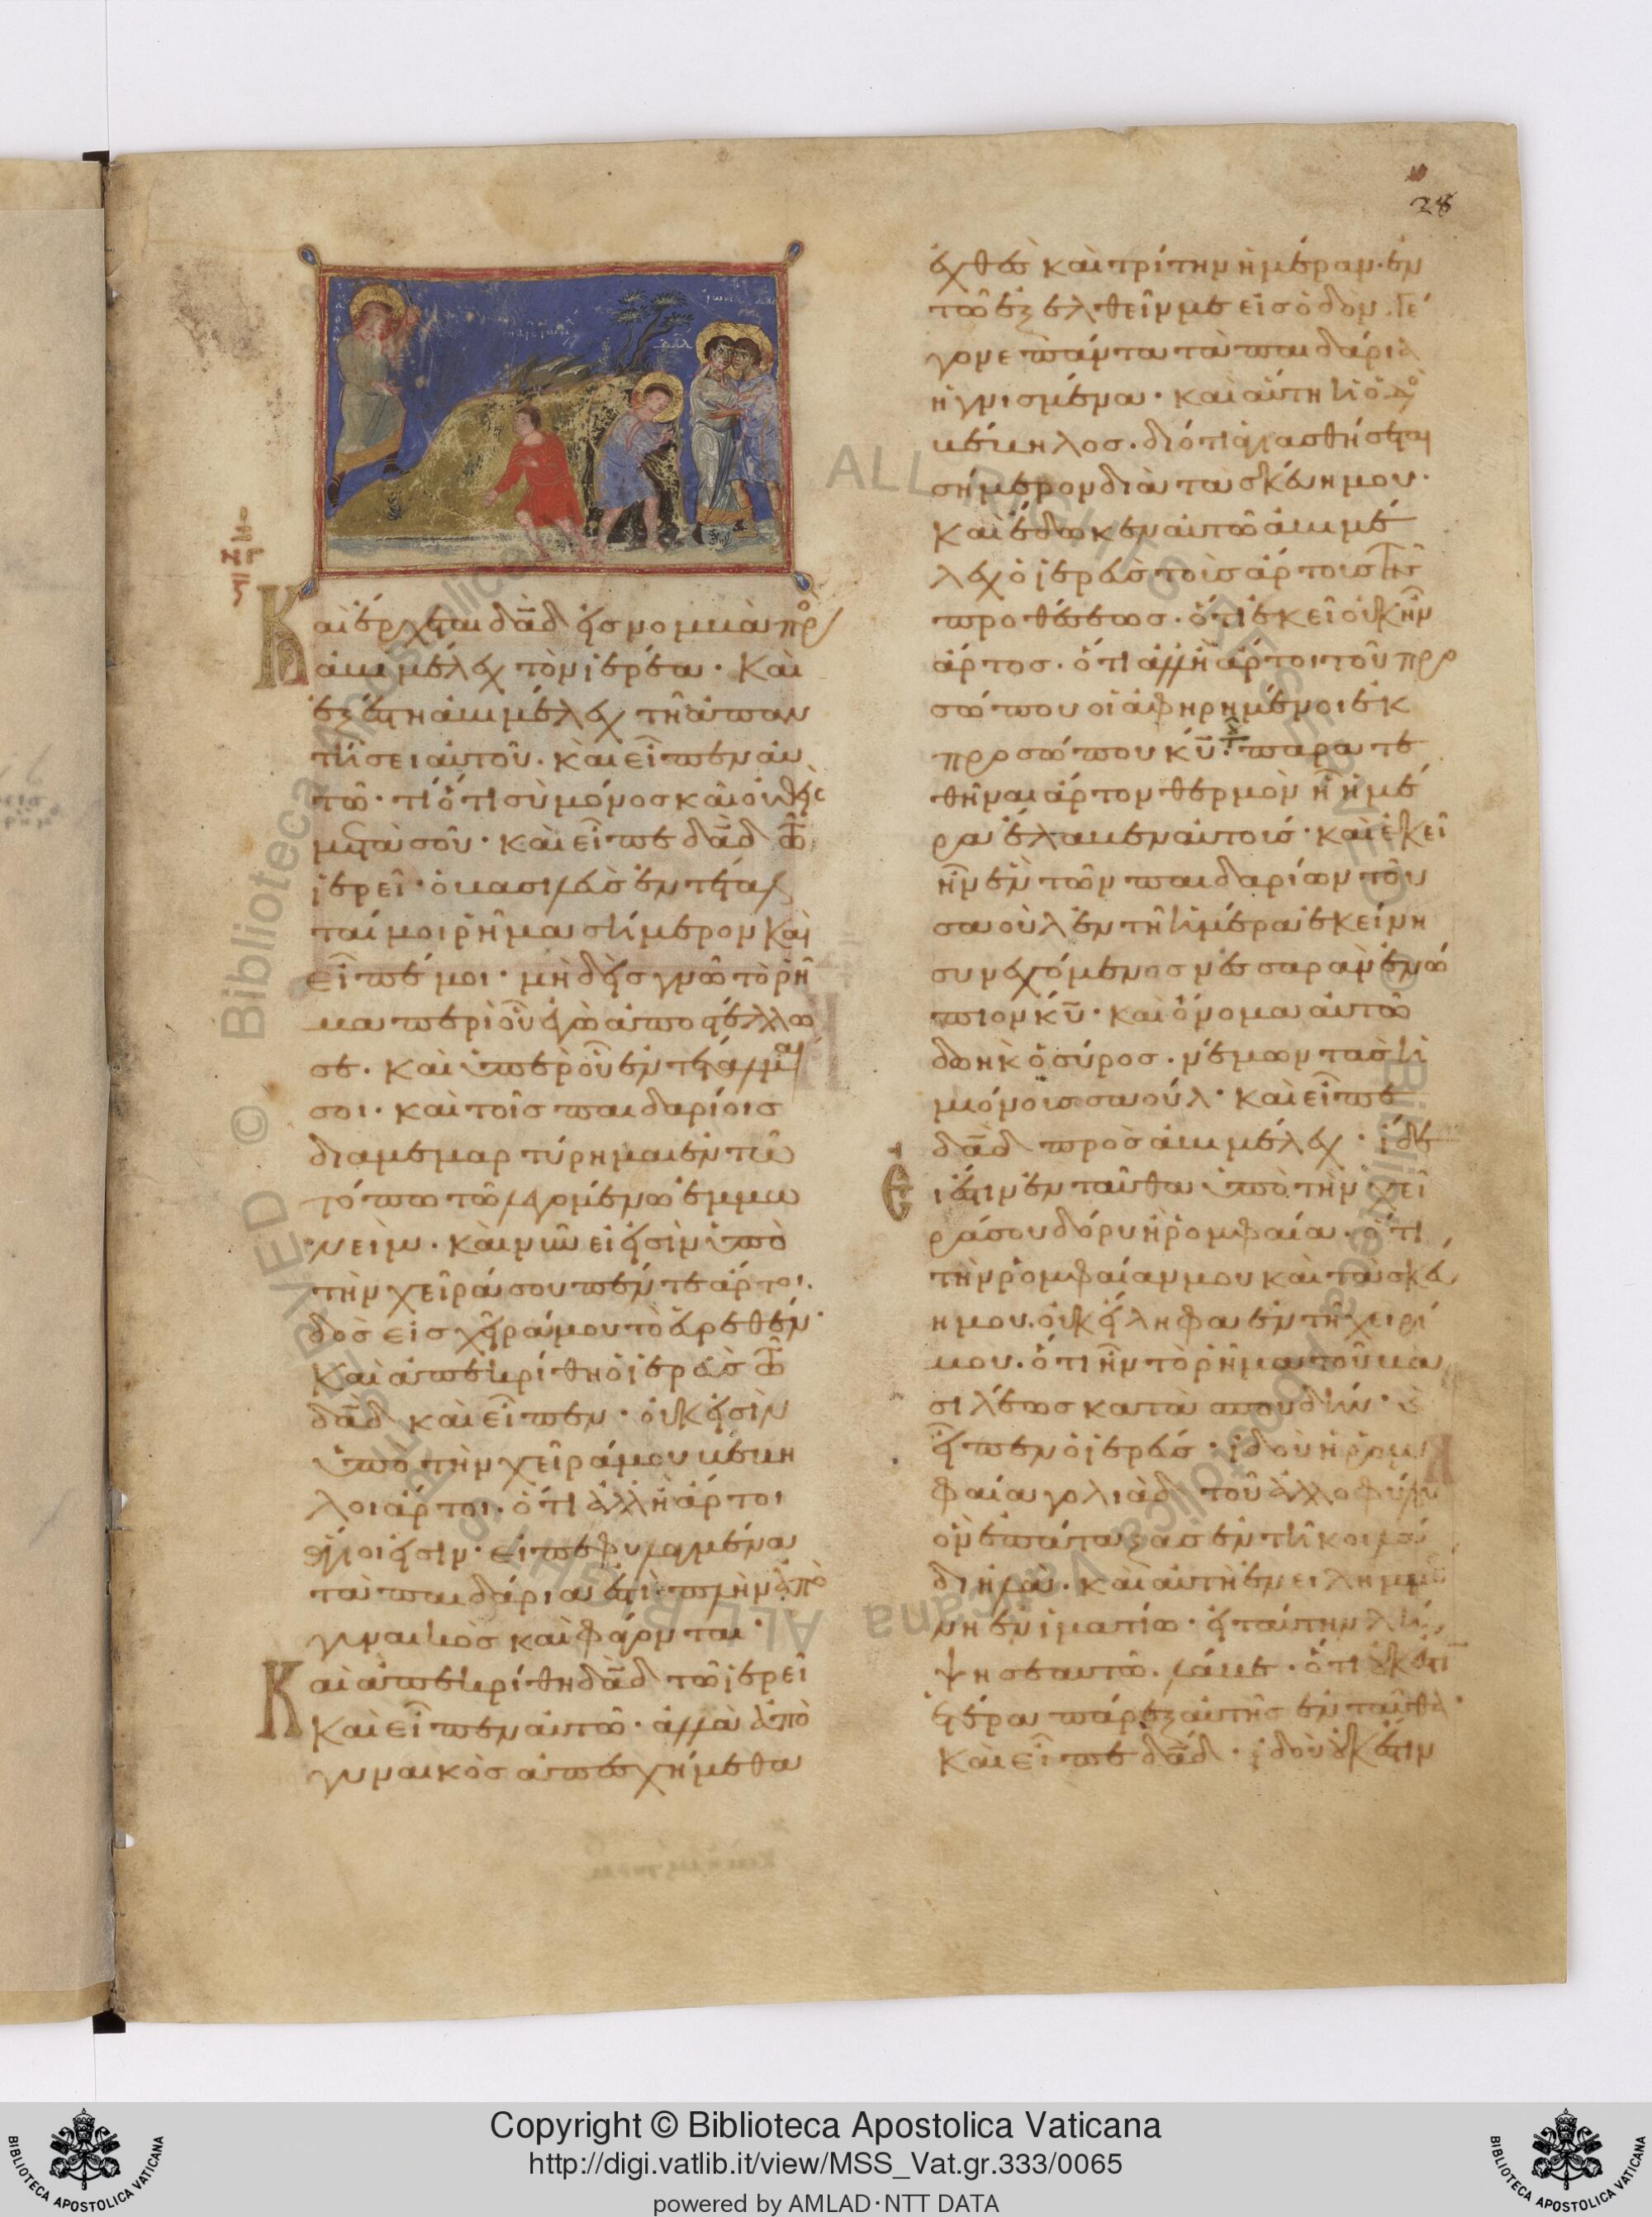 28
Καὶ ἔρχεται δα̅δ εἰς νομβὰ πρ
ἀβιμέλεχ τὸν ἱερέα · Καὶ
ἐξέστη ἀβιμέλεχ τῆ ἀπαν
τήσει αὐτοῦ · καὶ εἶπεν αὐ
τῶ · τί ὅτι σὺ μόνος καὶ οὐδεὶς
μετὰ σοῦ · καὶ εἶπε δα̅δ τῶ
ἱερεῖ · ὁ βασιλεὺς ἐντέταλ
ταί μοι ῥῆμα σήμερον καὶ
εἶπέ μοι · μηδεὶς γνῶ τὸ ῥῆ
μα περὶ οὗ ἐγὼ ἀποστέλλω
σε · καὶ ὑπὲρ οὗ ἐντέταλμαι
σοι · καὶ τοῖς παιδαρίοις
διαμεμαρτύρημαι ἐν τῶ
τόπω τῶ λεγομένω ἐμμω
νείμ · καὶ νῦν εἰ εἰσὶν ὑπὸ
τὴν χεῖρά σου πέντε ἄρτοι ·
δὸς εἰς χεῖρά μου τὸ εὑρεθέν ·
Καὶ ἀπεκρίθη ὁ ἱερεὺς τῶ
δα̅δ καὶ εἶπεν · οὐκ εἰσὶν
ὑπὸ τὴν χεῖρά μου βέβη
λοι ἄρτοι · ὅτι ἀλλ' ἢ ἄρτοι
ἅγιοί εἰσιν · εἰ πεφυλαγμένα
τὰ παιδάρια ἐστὶ πλὴν ἀπὸ
γυναικὸς καὶ φάγονται ·
Καὶ ἀπεκρίθη δα̅δ τῶ ἱερεῖ
καὶ εἶπεν αὐτῶ · ἀλλὰ ἀπὸ
γυναικὸς ἀπεσχήμεθα
ἐχθὲς καὶ τρίτην ἡμέραν · ἐν
τῶ ἐξελθεῖν με εἰς ὁδὸν · γέ
γονε πάντα τὰ παιδάρια
ἡγνισμένα · καὶ αὕτη ἡ ὁδὸ
βέβηλος · διότι ἁγιασθήσεται
σήμερον διὰ τὰ σκεύη μου ·
Καὶ ἔδωκεν αὐτῶ ἀβιμέ
λεχ ὁ ἱερεὺς τοὺς ἄρτους τῆς
προθέσεως · ὅτι ἐκεῖ οὐκ ἦν
ἄρτος · ὅτι ἀλλ' ἢ ἄρτοι τοῦ προ
σώπου οἱ ἀφηρημένοι ἐκ
προσώπου κ̅υ̅ · παρατε
θῆναι ἄρτον θερμὸν ἧ ἡμέ
ρα ἔλαβεν αὐτούς · καὶ ἐκεῖ
ἦν ἓν τῶν παιδαρίων τοῦ
σαοὺλ ἐν τῆ ἡμέρα ἐκείνη
συνεχόμενος νεσσαρὰν ἐνώ
πιον κ̅υ̅ · καὶ ὄνομα αὐτῶ
δωὴκ ὁ σύρος · νέμων τὰς ἡ
μιόνους σαούλ · καὶ εἶπε
δα̅δ πρὸς ἀβιμέλεχ · ἴδε
εἰ ἔστιν ἐνταῦθα ὑπὸ τὴν χεῖ
ρά σου δόρυ ἢ ῥομφαία · ὅτι
τὴν ῥομφαίαν μου καὶ τὰ σκεύ
η μου · οὐκ εἴληφα ἐν τῆ χειρί
μου · ὅτι ἦν τὸ ῥῆμα τοῦ βα
σιλέως κατὰ σπουδήν ·
εἶπεν ὁ ἱερεύς · ἰδοὺ ἡ ῥομ
φαία γολιὰδ τοῦ ἀλλοφύλου
ὃν ἐπάταξας ἐν τῆ κοιλά
δι ἠλά · καὶ αὐτὴ ἐνειλημμέ
νη ἐν ἱματίω · εἰ ταύτην λή
ψη σεαυτῶ · λάβε · ὅτι οὐκ ἔστιν
ἑτέρα πάρεξ αὐτῆς ἐνταῦθα ·
Καὶ εἶπε δα̅δ · ἰδοὺ οὐκ ἔστιν
ALL RIGHTS RESERVED © Biblioteca Apostolica Vaticana
Copyright © Biblioteca Apostolica Vaticana
http://digi.vatlib.it/view/MSS_Vat.gr.333/0065
powered by AMLAD·NTT DATA
BIBLIOTECA APOSTOLICA VATICANA
BIBLIOTECA APOSTOLICA VATICANA